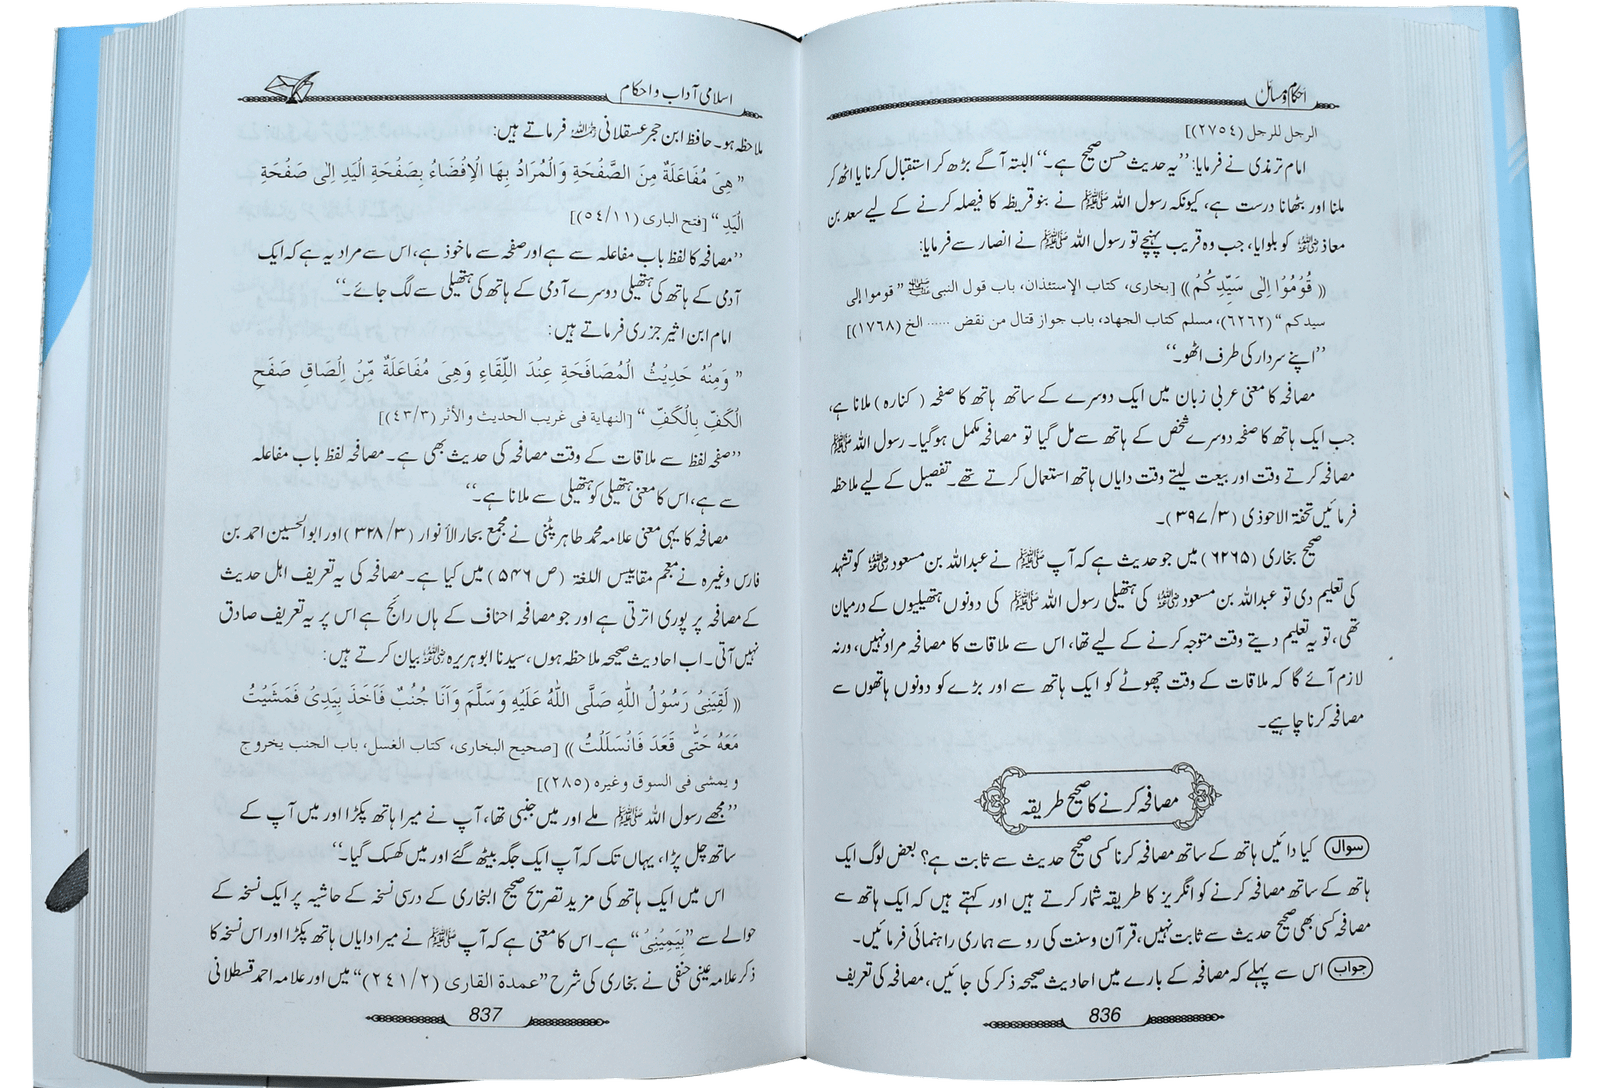 احکام ومسائل
الرجل للرجل (٢٧٥٤)]
امام ترمذی نے فرمایا: ’’یہ حدیث حسن صحیح ہے۔‘‘ البتہ آگے بڑھ کر استقبال کرنا یا اٹھ کر
ملنا اور بٹھانا درست ہے، کیونکہ رسول اللہ ﷺ نے بنو قریظہ کا فیصلہ کرنے کے لیے سعد بن
معاذ رضی اللہ عنہ کو بلوایا، جب وہ قریب پہنچے تو رسول اللہ ﷺ نے انصار سے فرمایا:
(( قُوْمُوْا اِلٰی سَیِّدِکُمْ )) [بخاری، کتاب الإستئذان، باب قول النبی ﷺ ” قوموا إلی
سیدکم “ (٦٢٦٢)، مسلم کتاب الجهاد، باب جواز قتال من نقض ...... الخ (١٧٦٨)]
’’اپنے سردار کی طرف اٹھو۔‘‘
مصافحہ کا معنی عربی زبان میں ایک دوسرے کے ساتھ ہاتھ کا صفحہ (کنارہ) ملانا ہے،
جب ایک ہاتھ کا صفحہ دوسرے شخص کے ہاتھ سے مل گیا تو مصافحہ مکمل ہوگیا۔ رسول اللہ ﷺ
مصافحہ کرتے وقت اور بیعت لیتے وقت دایاں ہاتھ استعمال کرتے تھے۔ تفصیل کے لیے ملاحظہ
فرمائیں تحفۃ الاحوذی (۳۹۷/۳)۔
صحیح بخاری (۶۲۶۵) میں جو حدیث ہے کہ آپ ﷺ نے عبداللہ بن مسعود رضی اللہ عنہ کو تشہد
کی تعلیم دی تو عبداللہ بن مسعود رضی اللہ عنہ کی ہتھیلی رسول اللہ ﷺ کی دونوں ہتھیلیوں کے درمیان
تھی، تو یہ تعلیم دیتے وقت متوجہ کرنے کے لیے تھا، اس سے ملاقات کا مصافحہ مراد نہیں، ورنہ
لازم آئے گا کہ ملاقات کے وقت چھوٹے کو ایک ہاتھ سے اور بڑے کو دونوں ہاتھوں سے
مصافحہ کرنا چاہیے۔
مصافحہ کرنے کا صحیح طریقہ
سوال کیا دائیں ہاتھ کے ساتھ مصافحہ کرنا کسی صحیح حدیث سے ثابت ہے؟ بعض لوگ ایک
ہاتھ کے ساتھ مصافحہ کرنے کو انگریز کا طریقہ شمار کرتے ہیں اور کہتے ہیں کہ ایک ہاتھ سے
مصافحہ کسی بھی صحیح حدیث سے ثابت نہیں، قرآن و سنت کی رو سے ہماری راہنمائی فرمائیں۔
جواب اس سے پہلے کہ مصافحہ کے بارے میں احادیث صحیحہ ذکر کی جائیں، مصافحہ کی تعریف
836
اسلامی آداب و احکام
ملاحظہ ہو۔ حافظ ابن حجر عسقلانی رحمہ اللہ فرماتے ہیں:
” هِیَ مُفَاعَلَةٌ مِنَ الصَّفْحَةِ وَالْمُرَادُ بِهَا الْاِفْضَاءُ بِصَفْحَةِ الْیَدِ اِلٰی صَفْحَةِ
الْیَدِ “ [فتح الباری (٥٤/١١)]
’’مصافحہ کا لفظ باب مفاعلہ سے ہے اور صفحہ سے ماخوذ ہے، اس سے مراد یہ ہے کہ ایک
آدمی کے ہاتھ کی ہتھیلی دوسرے آدمی کے ہاتھ کی ہتھیلی سے لگ جائے۔‘‘
امام ابن اثیر جزری فرماتے ہیں:
” وَمِنْهُ حَدِیْثُ الْمُصَافَحَةِ عِنْدَ اللِّقَاءِ وَهِیَ مُفَاعَلَةٌ مِّنْ اِلْصَاقِ صَفْحِ
الْکَفِّ بِالْکَفِّ “ [النهاية فی غریب الحدیث والأثر (٤٣/٣)]
’’صفحہ لفظ سے ملاقات کے وقت مصافحہ کی حدیث بھی ہے۔ مصافحہ لفظ باب مفاعلہ
سے ہے، اس کا معنی ہتھیلی کو ہتھیلی سے ملانا ہے۔‘‘
مصافحہ کا یہی معنی علامہ محمد طاہر پٹنی نے مجمع بحار الأنوار (۳۲۸/۳) اور ابوالحسین احمد بن
فارس وغیرہ نے معجم مقاییس اللغۃ (ص ۵۴۶) میں کیا ہے۔ مصافحہ کی یہ تعریف اہل حدیث
کے مصافحہ پر پوری اترتی ہے اور جو مصافحہ احناف کے ہاں رائج ہے اس پر یہ تعریف صادق
نہیں آتی۔ اب احادیث صحیحہ ملاحظہ ہوں، سیدنا ابو ہریرہ رضی اللہ عنہ بیان کرتے ہیں:
(( لَقِیَنِیْ رَسُوْلُ اللّٰهِ صَلَّی اللّٰهُ عَلَیْهِ وَسَلَّمَ وَاَنَا جُنُبٌ فَاَخَذَ بِیَدِیْ فَمَشَیْتُ
مَعَهٗ حَتّٰی قَعَدَ فَانْسَلَلْتُ )) [صحیح البخاری، کتاب الغسل، باب الجنب یخروج
و یمشی فی السوق وغیره (٢٨٥)]
’’مجھے رسول اللہ ﷺ ملے اور میں جنبی تھا، آپ نے میرا ہاتھ پکڑا اور میں آپ کے
ساتھ چل پڑا، یہاں تک کہ آپ ایک جگہ بیٹھ گئے اور میں کھسک گیا۔‘‘
اس میں ایک ہاتھ کی مزید تصریح صحیح البخاری کے درسی نسخہ کے حاشیہ پر ایک نسخہ کے
حوالے سے ”بِیَمِیْنِیْ“ ہے۔ اس کا معنی ہے کہ آپ ﷺ نے میرا دایاں ہاتھ پکڑا اور اس نسخہ کا
ذکر علامہ عینی حنفی نے بخاری کی شرح ”عمدة القاری (٢٤١/٢)“ میں اور علامہ احمد قسطلانی
837